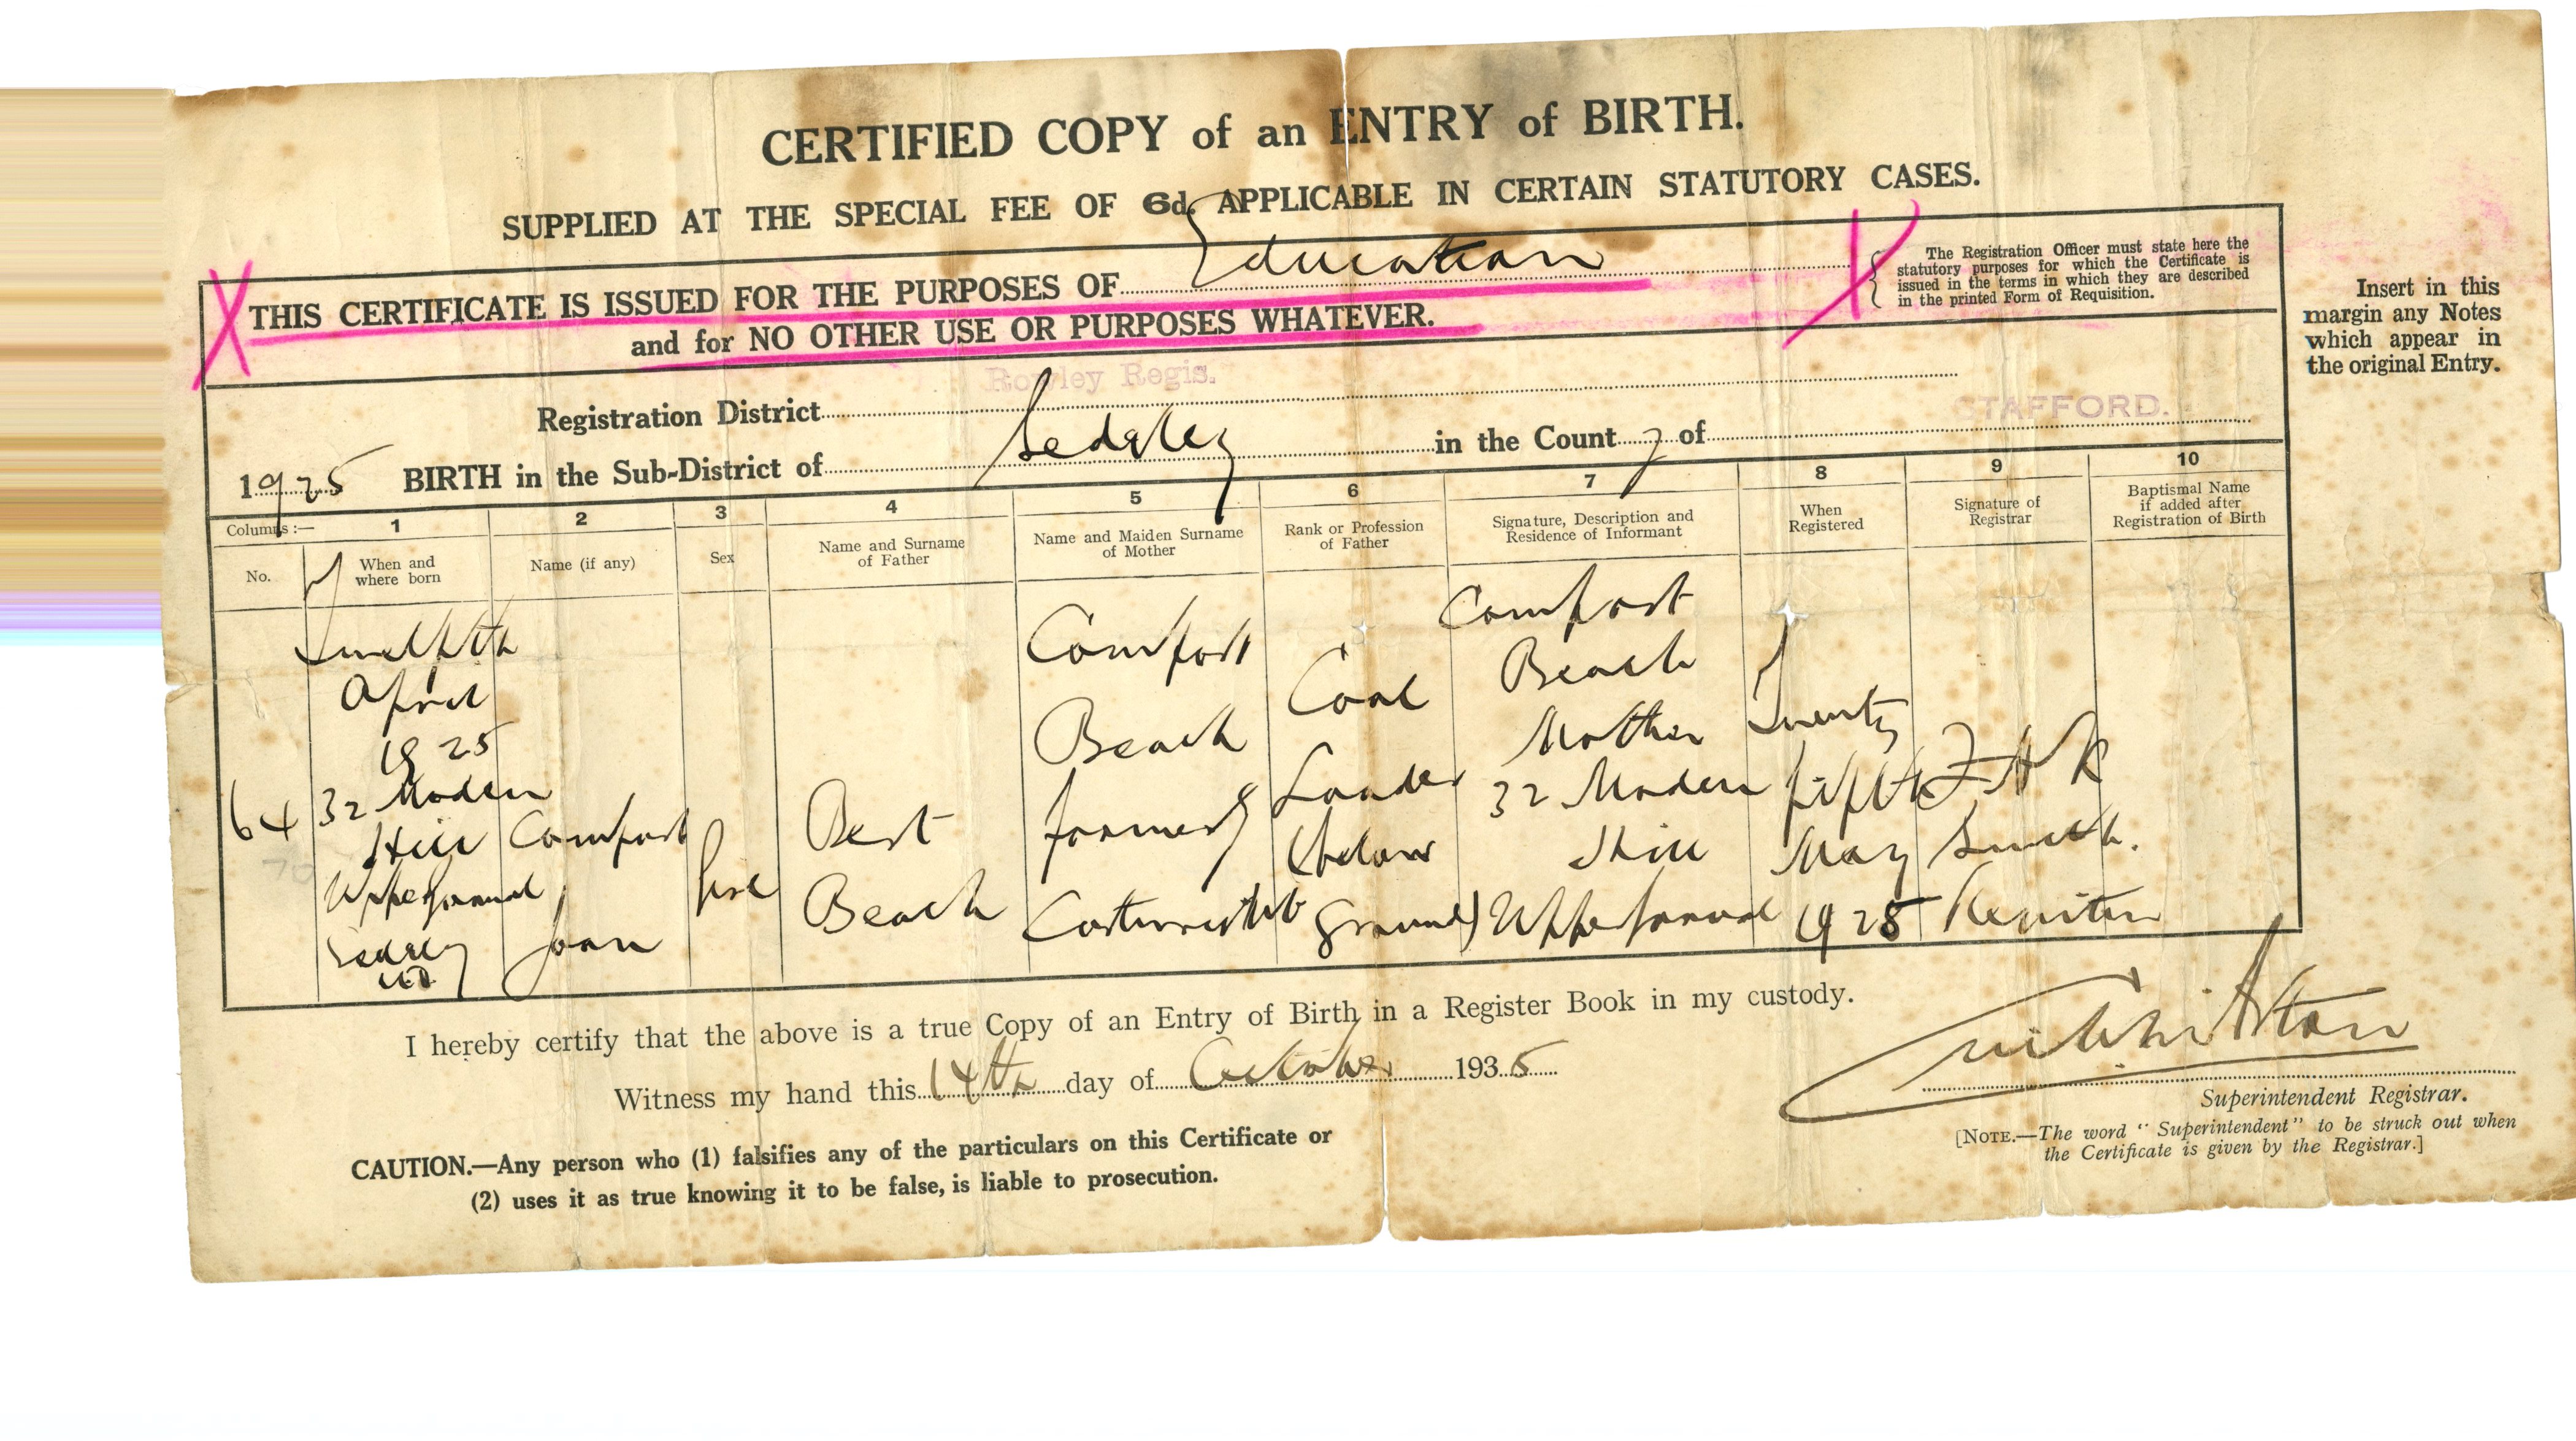 CERTIFIED COPY of an ENTRY of BIRTH.
SUPPLIED AT THE SPECIAL FEE OF 6d. APPLICABLE IN CERTAIN STATUTORY CASES.
THIS CERTIFICATE IS ISSUED FOR THE PURPOSES OF Education
and for NO OTHER USE OR PURPOSES WHATEVER.
The Registration Officer must state here the
statutory purposes for which the Certificate is
issued in the terms in which they are described
in the printed Form of Requisition.
Insert in this
margin any Notes
which appear in
the original Entry.
Registration District Rowley Regis.
1925 BIRTH in the Sub-District of Sedgley in the County of STAFFORD.
Columns :— 1 2 3 4 5 6 7 8 9 10
No.
When and
where born
Name (if any)
Sex
Name and Surname
of Father
Name and Maiden Surname
of Mother
Rank or Profession
of Father
Signature, Description and
Residence of Informant
When
Registered
Signature of
Registrar
Baptismal Name
if added after
Registration of Birth
64
Twelfth
April
1925
32 Moden
Hill
Uppergornal
Sedgley
UD
Comfort
Joan
Girl
Bert
Beach
Comfort
Beach
formerly
Cartwright
Coal
Loader
(below
ground)
Comfort
Beach
Mother
32 Moden
Hill
Uppergornal
Twenty
fifth
May
1925
Smith.
Registrar
I hereby certify that the above is a true Copy of an Entry of Birth in a Register Book in my custody.
Witness my hand this 14th day of October 1935
Superintendent Registrar.
[NOTE.—The word "Superintendent" to be struck out when
the Certificate is given by the Registrar.]
CAUTION.—Any person who (1) falsifies any of the particulars on this Certificate or
(2) uses it as true knowing it to be false, is liable to prosecution.